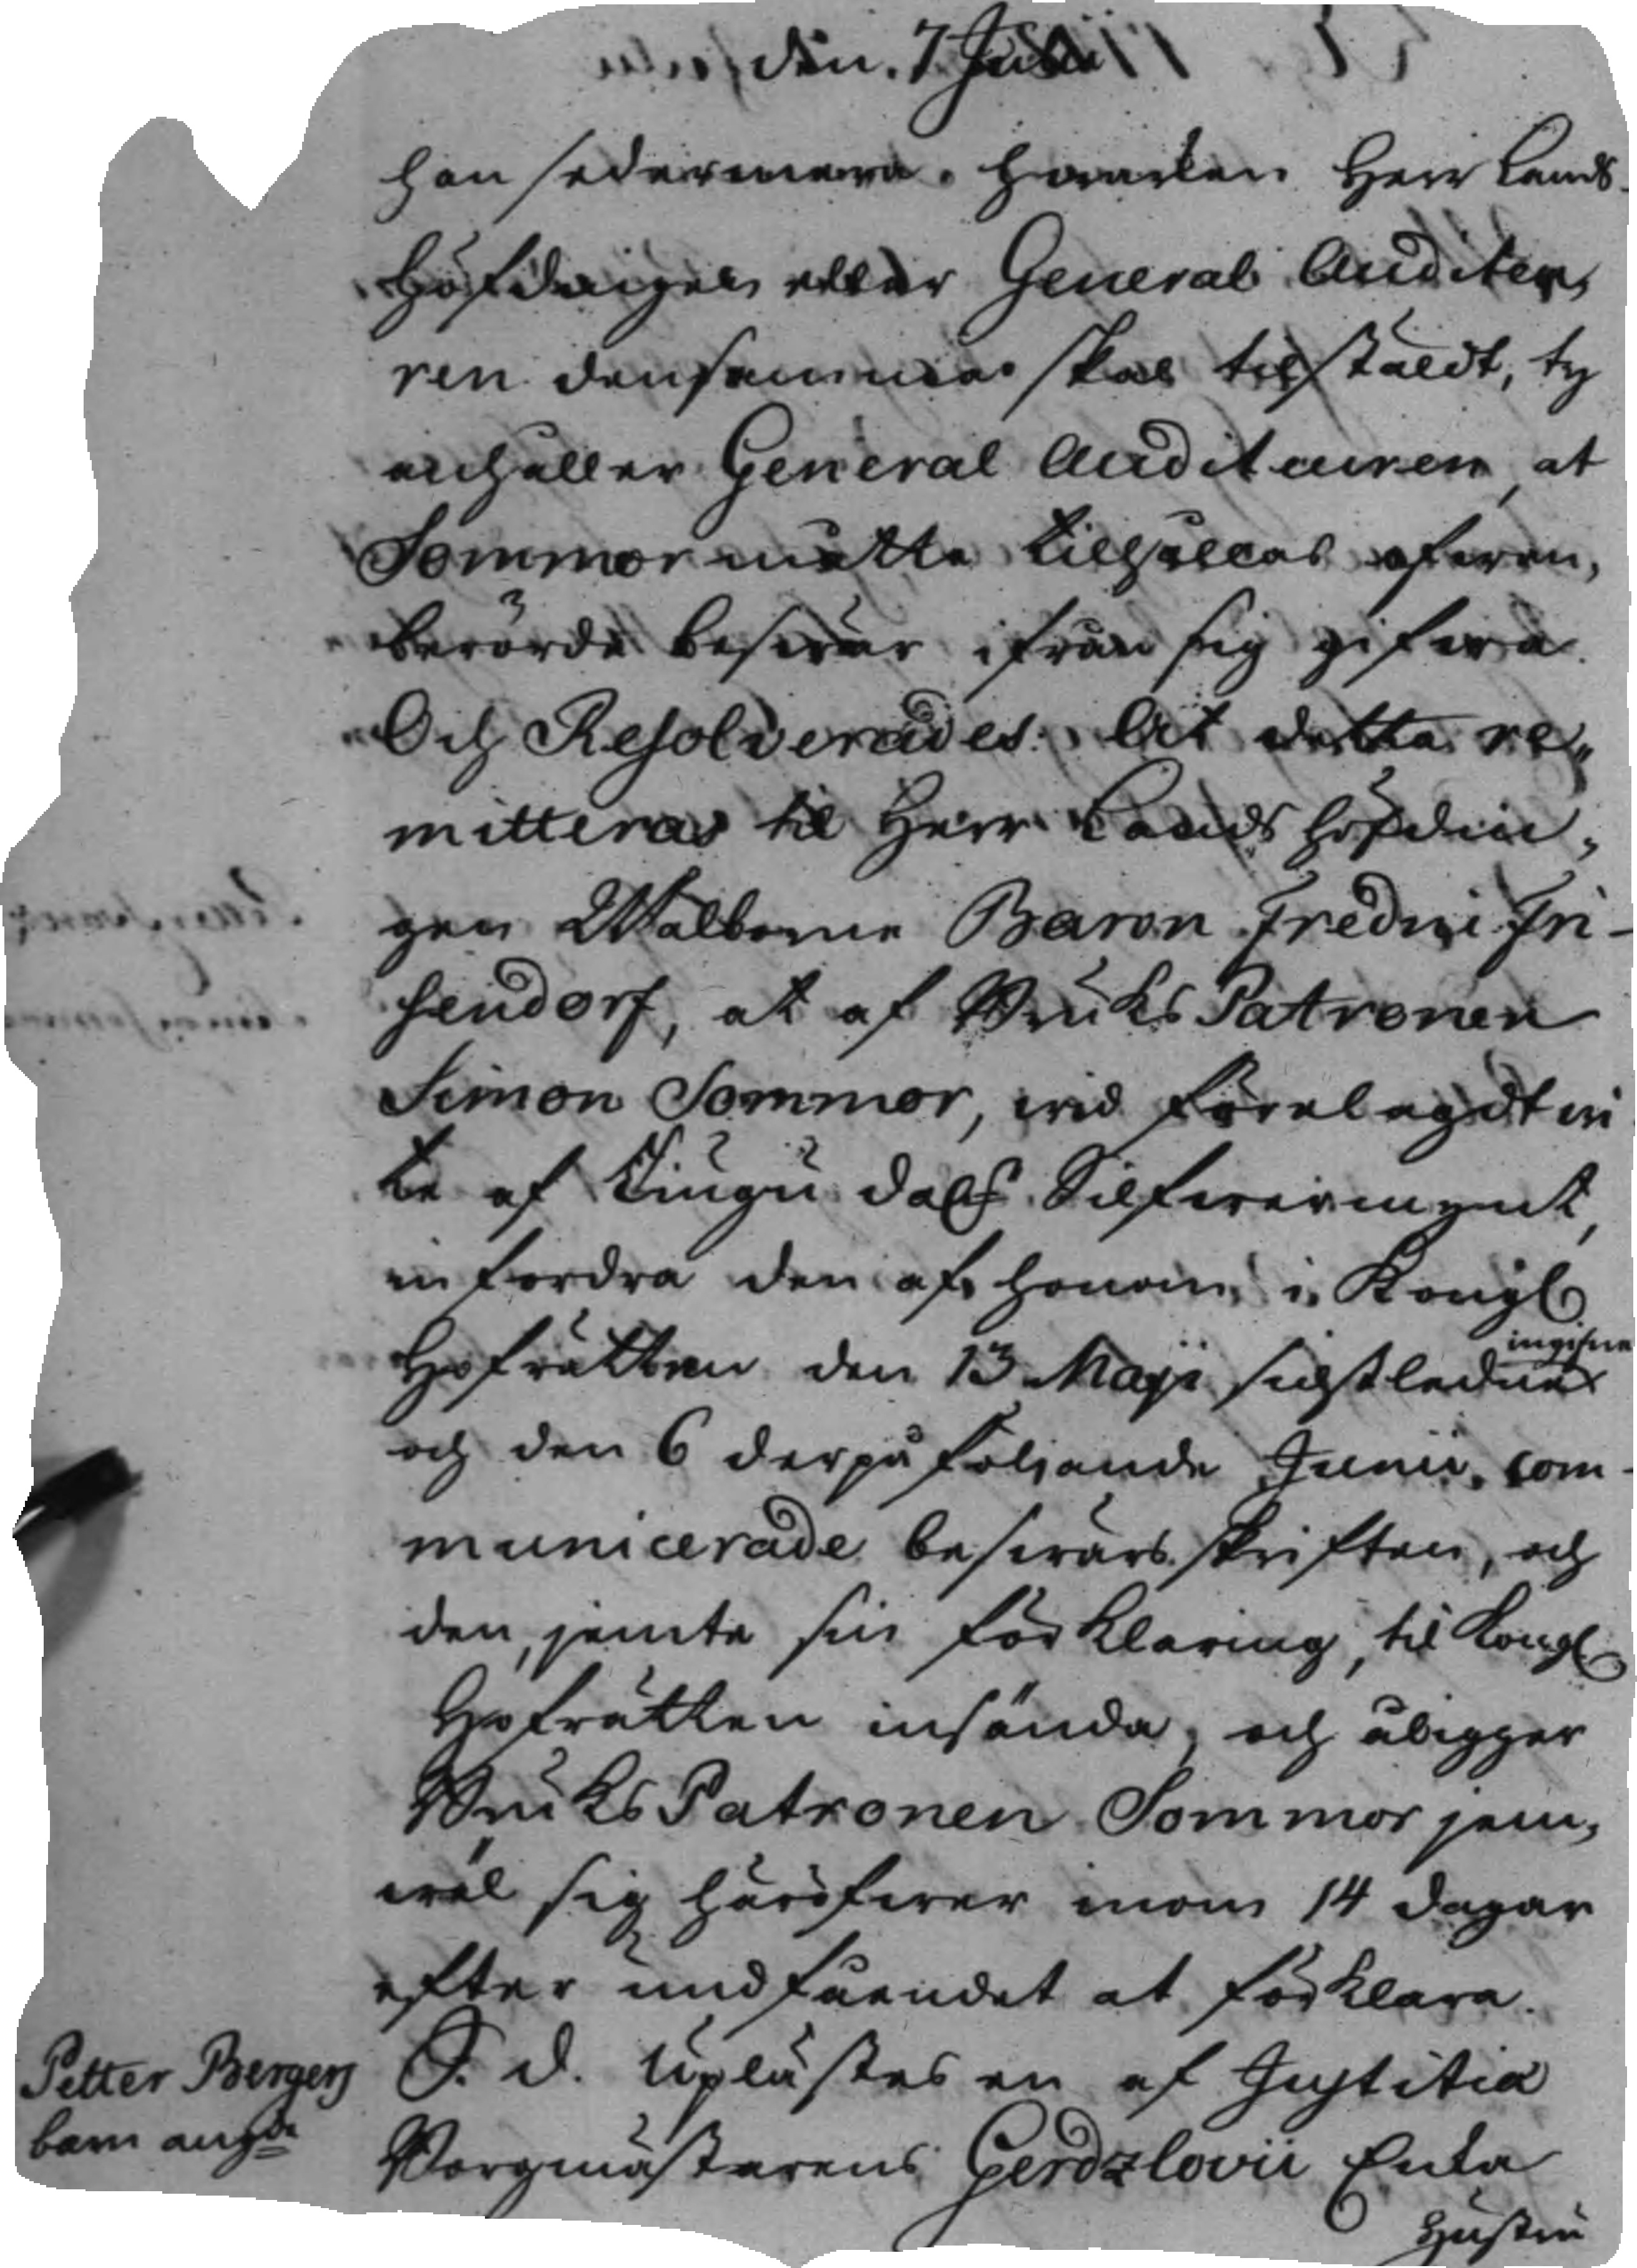 den. 7 Julii
han sedermera hwarken Herr Lands-
Höfdingen eller General Auditeu,
ren densamma skal tilstäldt, ty
anhåller General Auditeuren, at
Sommor måtte tilhållas ofwan,
berörde beswär ifrån sig gifwa.
Och Resolverades. At detta re,
mitteras til Herr Lands höfdin,
gen Wälborne Baron Fredric Fri-
sendorf, at af Bruks Patronen
Simon Sommor, wid förelagdt wi
te af Tiugu dal:r Silfwermynt,
infordra den af honom i Kongl
Hofrätten den 13 Maji sidstledne ingifne
och den 6 derpå följande Junii com-
municerade beswärs skriften, och
den, jemte sin förklaring, til Kongl
Hofrätten insända, och åligger
Bruks Patronen Sommor jem,
wäl sig häröfwer inom 14 dagar
efter undfåendet at förklara.
Petter Bergers
barn ang:de
S. d. Uplästes en af Justitiæ
Borgmästarens Gerdzlovii Enka
Hustru